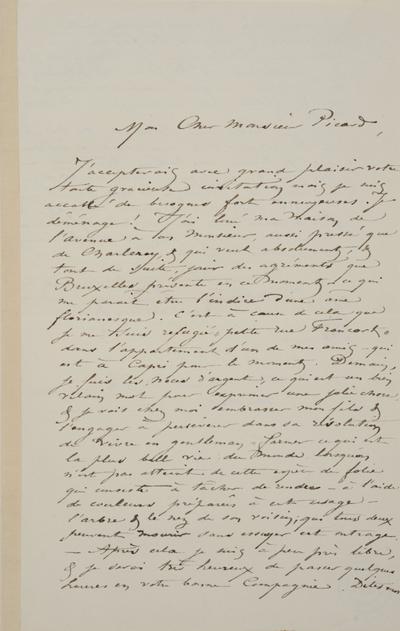 Mon Cher Monsieur Picard,
J'accepterais avec grand plaisir votre
toute gracieuse invitation mais je suis
accablé de besognes fort ennuyeuses. Je
déménage! J'ai loué ma maison de
l'avenue à un Monsieur aussi pressé que
de Charleroy & qui veut absolument, &
tout de suite, jouir des agréments que
Bruxelles présente en ce moment, ce qui
me parait être l'indice d'une âme
florianesque. C'est à cause de cela que
je me suis refugié, petite rue Francart,
dans l'appartement d'un de mes amis qui
est à Capri pour le moment. Demain,
je fais les Noces d'argent, ce qui est un bien
vilain mot pour exprimer une jolie chose,
& je vais chez moi embrasser mon fils &
l'engager à persévérer dans sa résolution
de vivre en gentleman-farmer ce qui est
la plus belle vie du monde lorsqu'on
n'est pas atteint de cette espèce de folie
qui consiste à tâcher de rendre – à l'aide
de couleurs préparés à cet usage –
l'arbre & le nez de son voisin, qui tous deux
peuvent mourir sans essuyer cet outrage.
– Après cela je suis à peu près libre,
& je serai très heureux de passer quelques
heures en votre bonne Compagnie. Dites moi